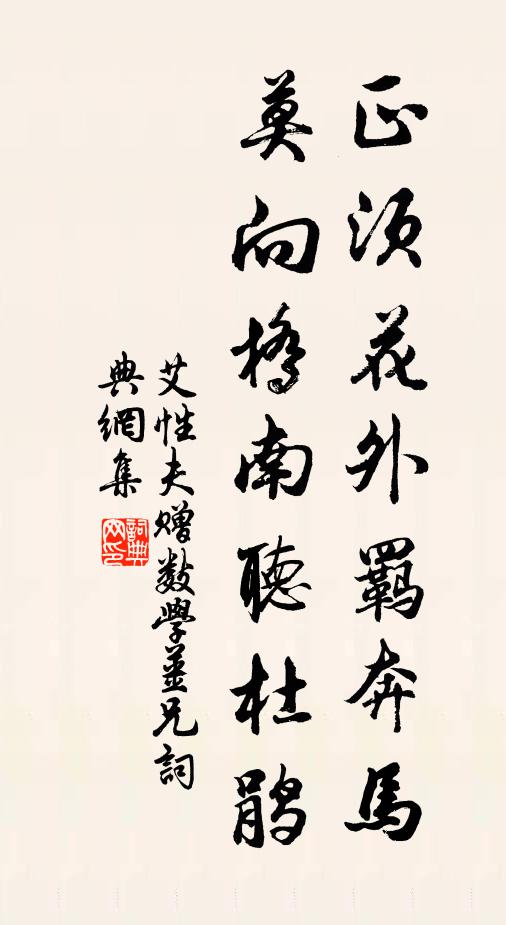 正須花外羈奔馬
莫向橋南聽杜鵑
艾性夫贈數學薑兄詞
典網集
詞典
网印